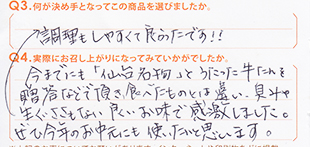 Q3.何が決め手となってこの商品を選びましたか。
調理もしやすくて良かったです!!
Q4.実際にお召し上がりになってみていかがでしたか。
今までにも「仙台名物」とうたった牛たんを
贈答などで頂き、食べたものとは違い、臭みや
生ぐささもない良いお味で感激しました。
ぜひ今年のお中元にも使いたいと思います。